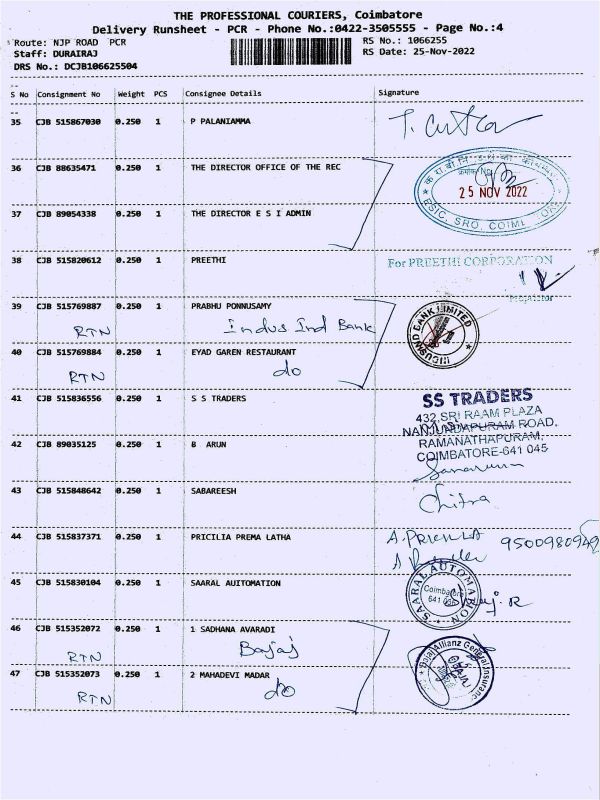 THE PROFESSIONAL COURIERS, Coimbatore
Delivery Runsheet - PCR - Phone No.:0422-3505555 - Page No.:4
Route: NJP ROAD PCR
RS No.: 1066255
Staff: DURAIRAJ
RS Date: 25-Nov-2022
DRS No.: DCJB106625504
S No Consignment No Weight PCS Consignee Details Signature
35 CJB 515867030 0.250 1 P PALANIAMMA
36 CJB 88635471 0.250 1 THE DIRECTOR OFFICE OF THE REC
25 NOV 2022
ESIC, SRO, COIM
37 CJB 89054338 0.250 1 THE DIRECTOR E S I ADMIN
38 CJB 515820612 0.250 1 PREETHI
For PREETHI CORPORATION
39 CJB 515769887 0.250 1 PRABHU PONNUSAMY
RTN Indus Ind Bank
INDUSIND BANK LIMITED
40 CJB 515769884 0.250 1 EYAD GAREN RESTAURANT
RTN do
41 CJB 515836556 0.250 1 S S TRADERS
SS TRADERS
432, SRI RAAM PLAZA
NANJUNDAPURAM ROAD,
RAMANATHAPURAM,
COIMBATORE-641 045
42 CJB 89035125 0.250 1 B ARUN
43 CJB 515848642 0.250 1 SABAREESH
Chitra
44 CJB 515837371 0.250 1 PRICILIA PREMA LATHA
45 CJB 515830104 0.250 1 SAARAL AUITOMATION
SAARAL AUTOMARION
Coimbatore
46 CJB 515352072 0.250 1 1 SADHANA AVARADI
RTN Bajaj
Bajaj Allianz General Insurance
47 CJB 515352073 0.250 1 2 MAHADEVI MADAR
RTN do